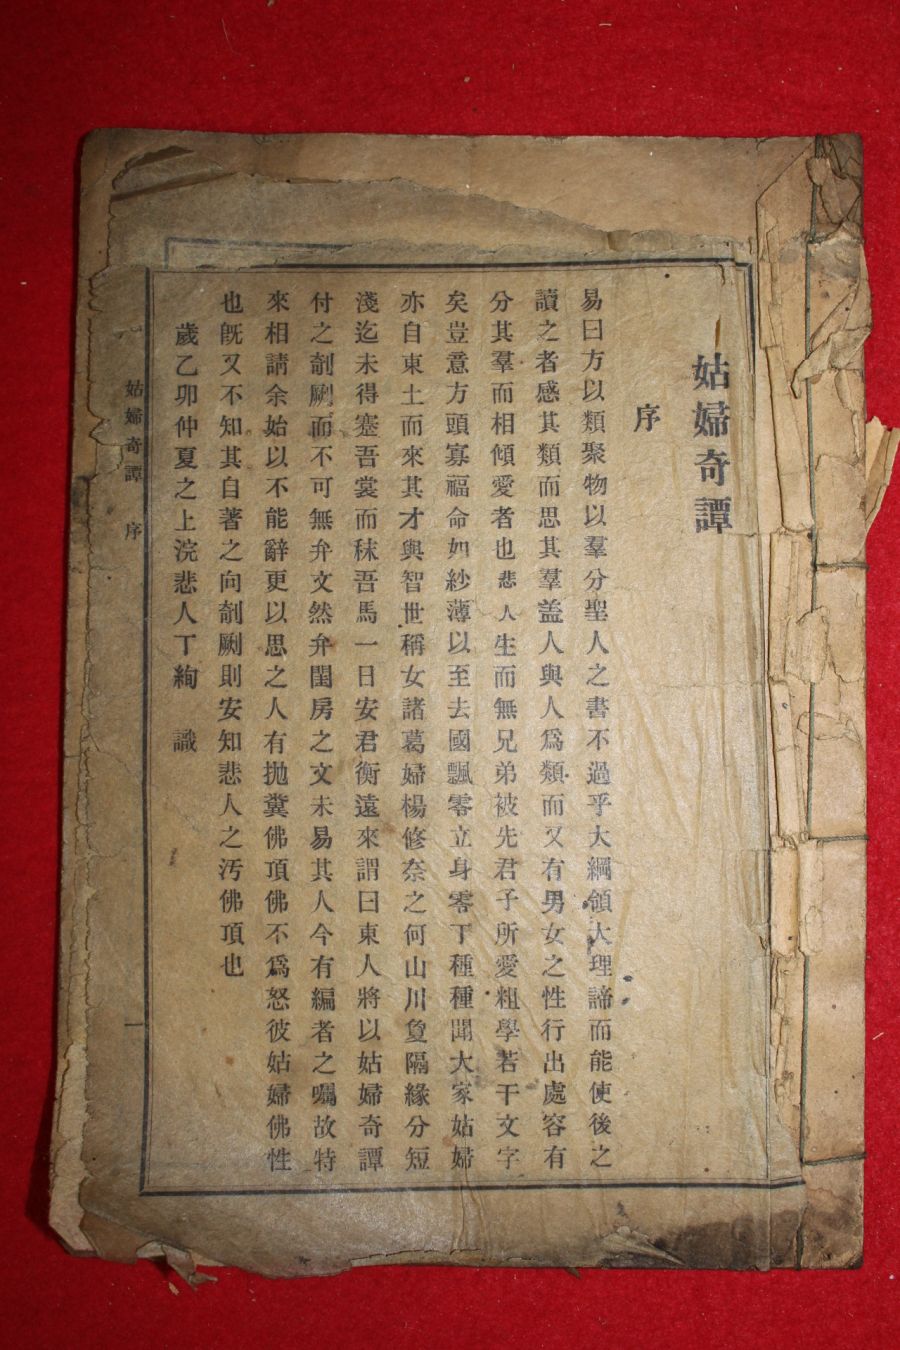 姑婦奇譚
序
易曰方以類聚物以羣分聖人之書不過乎大綱領大理諦而能使後之
讀之者感其類而思其羣盖人與人爲類而又有男女之性行出處容有
分其羣而相傾愛者也悲人生而無兄弟被先君子所愛粗學若干文字
矣豈意方頭寡福命如紗薄以至去國飄零立身零丁種種聞大家姑婦
亦自東土而來其才與智世稱女諸葛婦楊修奈之何山川夐隔緣分短
淺迄未得蹇吾裳而秣吾馬一日安君衡遠來謂曰東人將以姑婦奇譚
付之剞劂而不可無弁文然弁閨房之文未易其人今有編者之囑故特
來相請余始以不能辭更以思之人有抛糞佛頂佛不爲怒彼姑婦佛性
也旣又不知其自著之向剞劂則安知悲人之汚佛頂也
歲乙卯仲夏之上浣悲人丁絢 識
姑婦奇譚 序
一